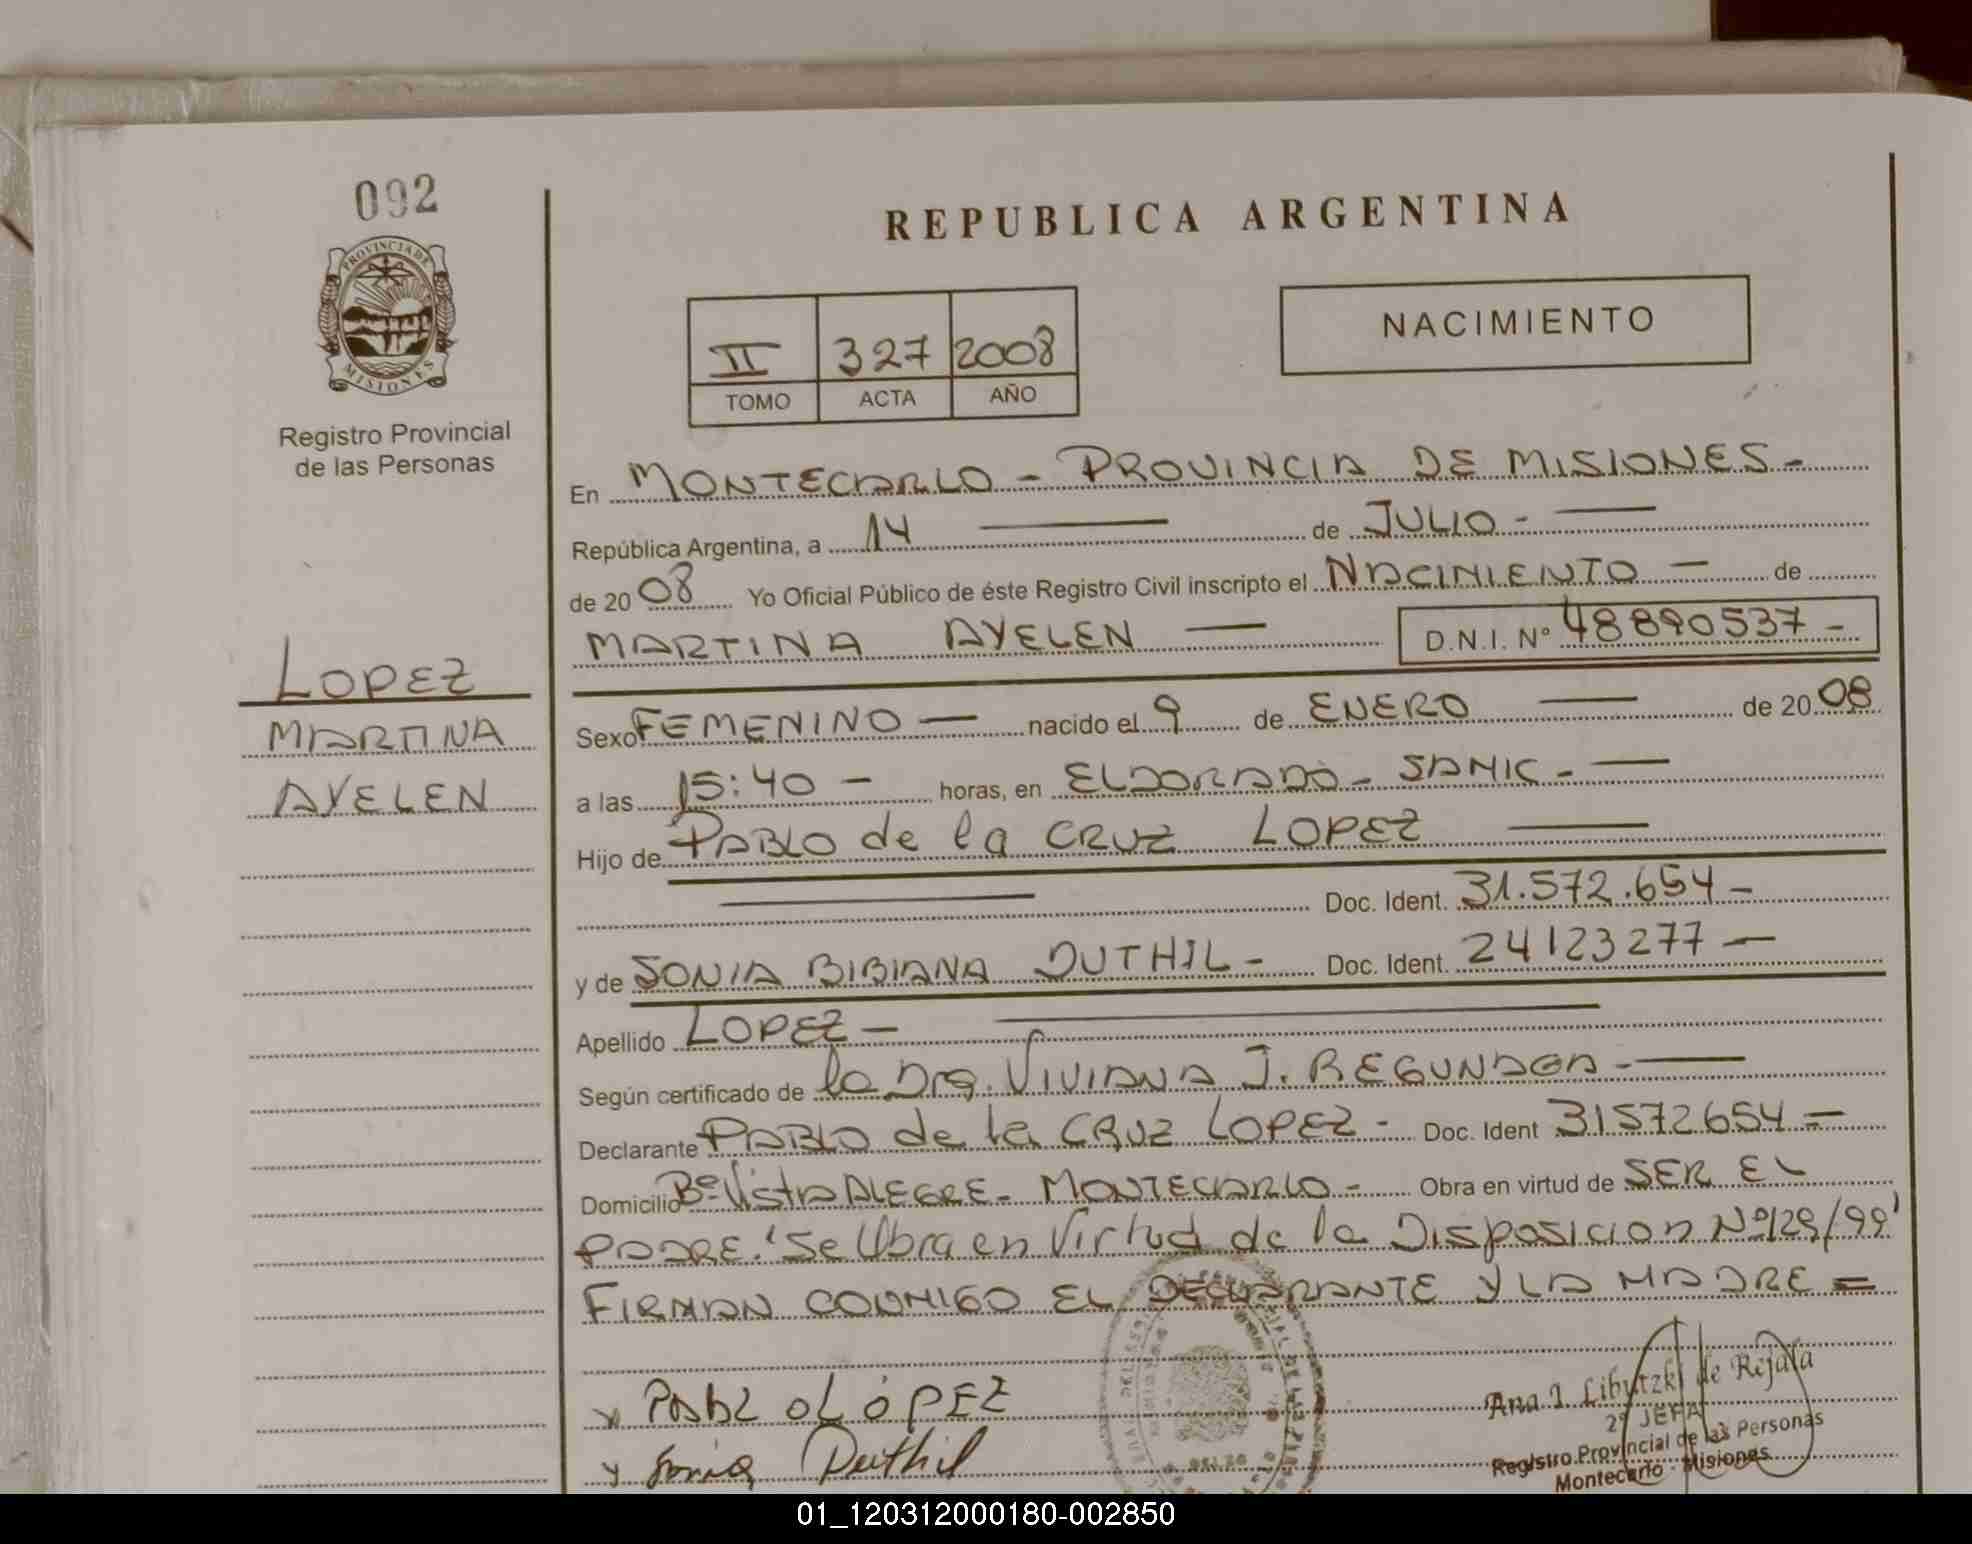 092
PROVINCIA DE
MISIONES
Registro Provincial
de las Personas
LOPEZ
MARTINA
AYELEN
REPUBLICA ARGENTINA
II 327 2008
TOMO ACTA AÑO
NACIMIENTO
En MONTECARLO - PROVINCIA DE MISIONES -
República Argentina, a 14 — de JULIO - —
de 20 08 Yo Oficial Público de éste Registro Civil inscripto el NACIMIENTO — de
MARTINA AYELEN — D.N.I. Nº 48890537 -
Sexo FEMENINO — nacido el 9 de ENERO — de 20 08
a las 15:40 - horas, en ELDORADO - SAMIC - —
Hijo de PABLO de la CRUZ LOPEZ —
— Doc. Ident. 31.572.654 -
y de SONIA BIBIANA DUTHIL - Doc. Ident. 24123277 —
Apellido LOPEZ - —
Según certificado de la Dra. VIVIANA J. REGUNAGA - —
Declarante PABLO de la CRUZ LOPEZ - Doc. Ident 31572654 =
Domicilio Bº Vista ALEGRE - MONTECARLO - Obra en virtud de SER EL
PADRE. "Se Obra en Virtud de la Disposicion Nº 129/99"
FIRMAN CONMIGO EL DECLARANTE Y LA MADRE =
x PABLO LÓPEZ
y Sonia Duthil
Ana I. Libutzki de Rejala
2º JEFA
Registro Provincial de las Personas
Montecarlo - Misiones
01_120312000180-002850